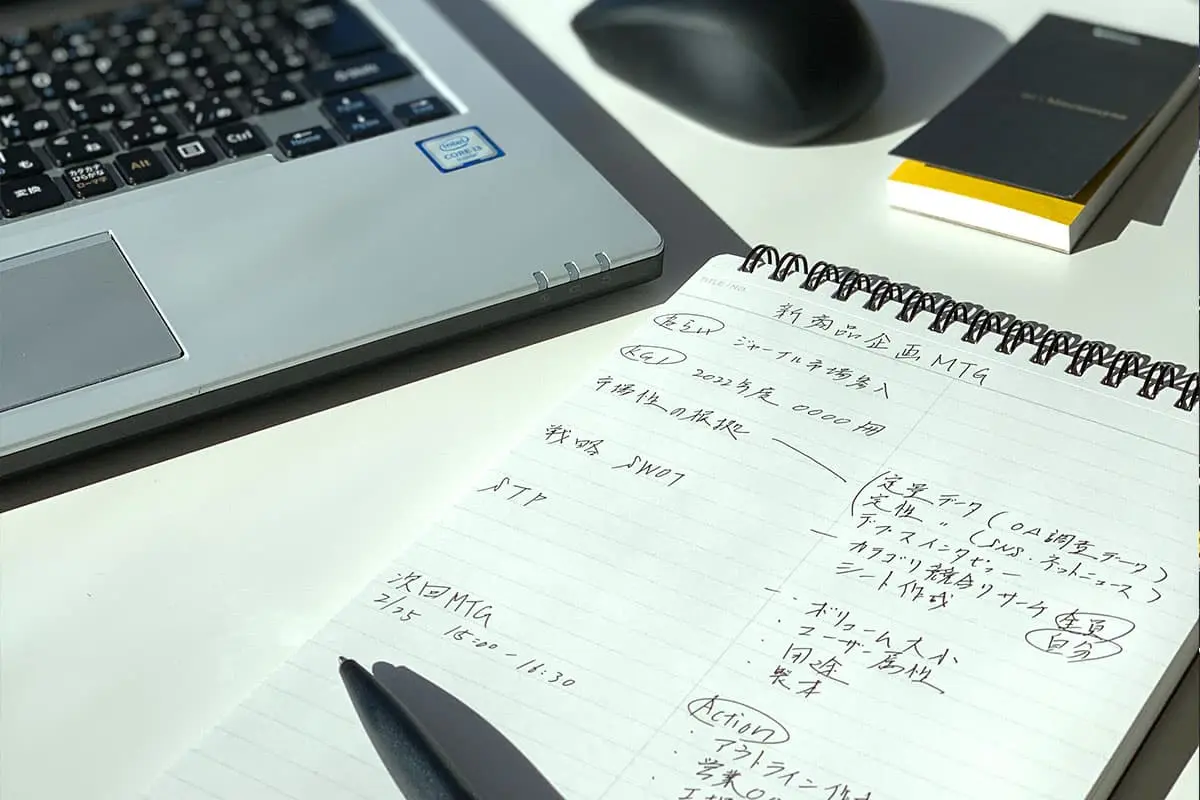 変換
カタカナ
ひらがな
ローマ字
Alt
Ctrl
Home
intel
CORE i3
新商品企画MTG
ねらい ジャーナル市場参入
KGI 2022年度 0000冊
市場性の根拠
戦略 SWOT
STP
次回MTG
2/25 15:00-16:30
定量データ(OA調査データ)
定性 〃 (SNS・ネットニュース)
デプスインタビュー
カテゴリ競合リサーチ 全員
シート作成 自分
・ボリューム大小
・ユーザー属性
・用途
・製本
Action
・アウトライン作成
・営業